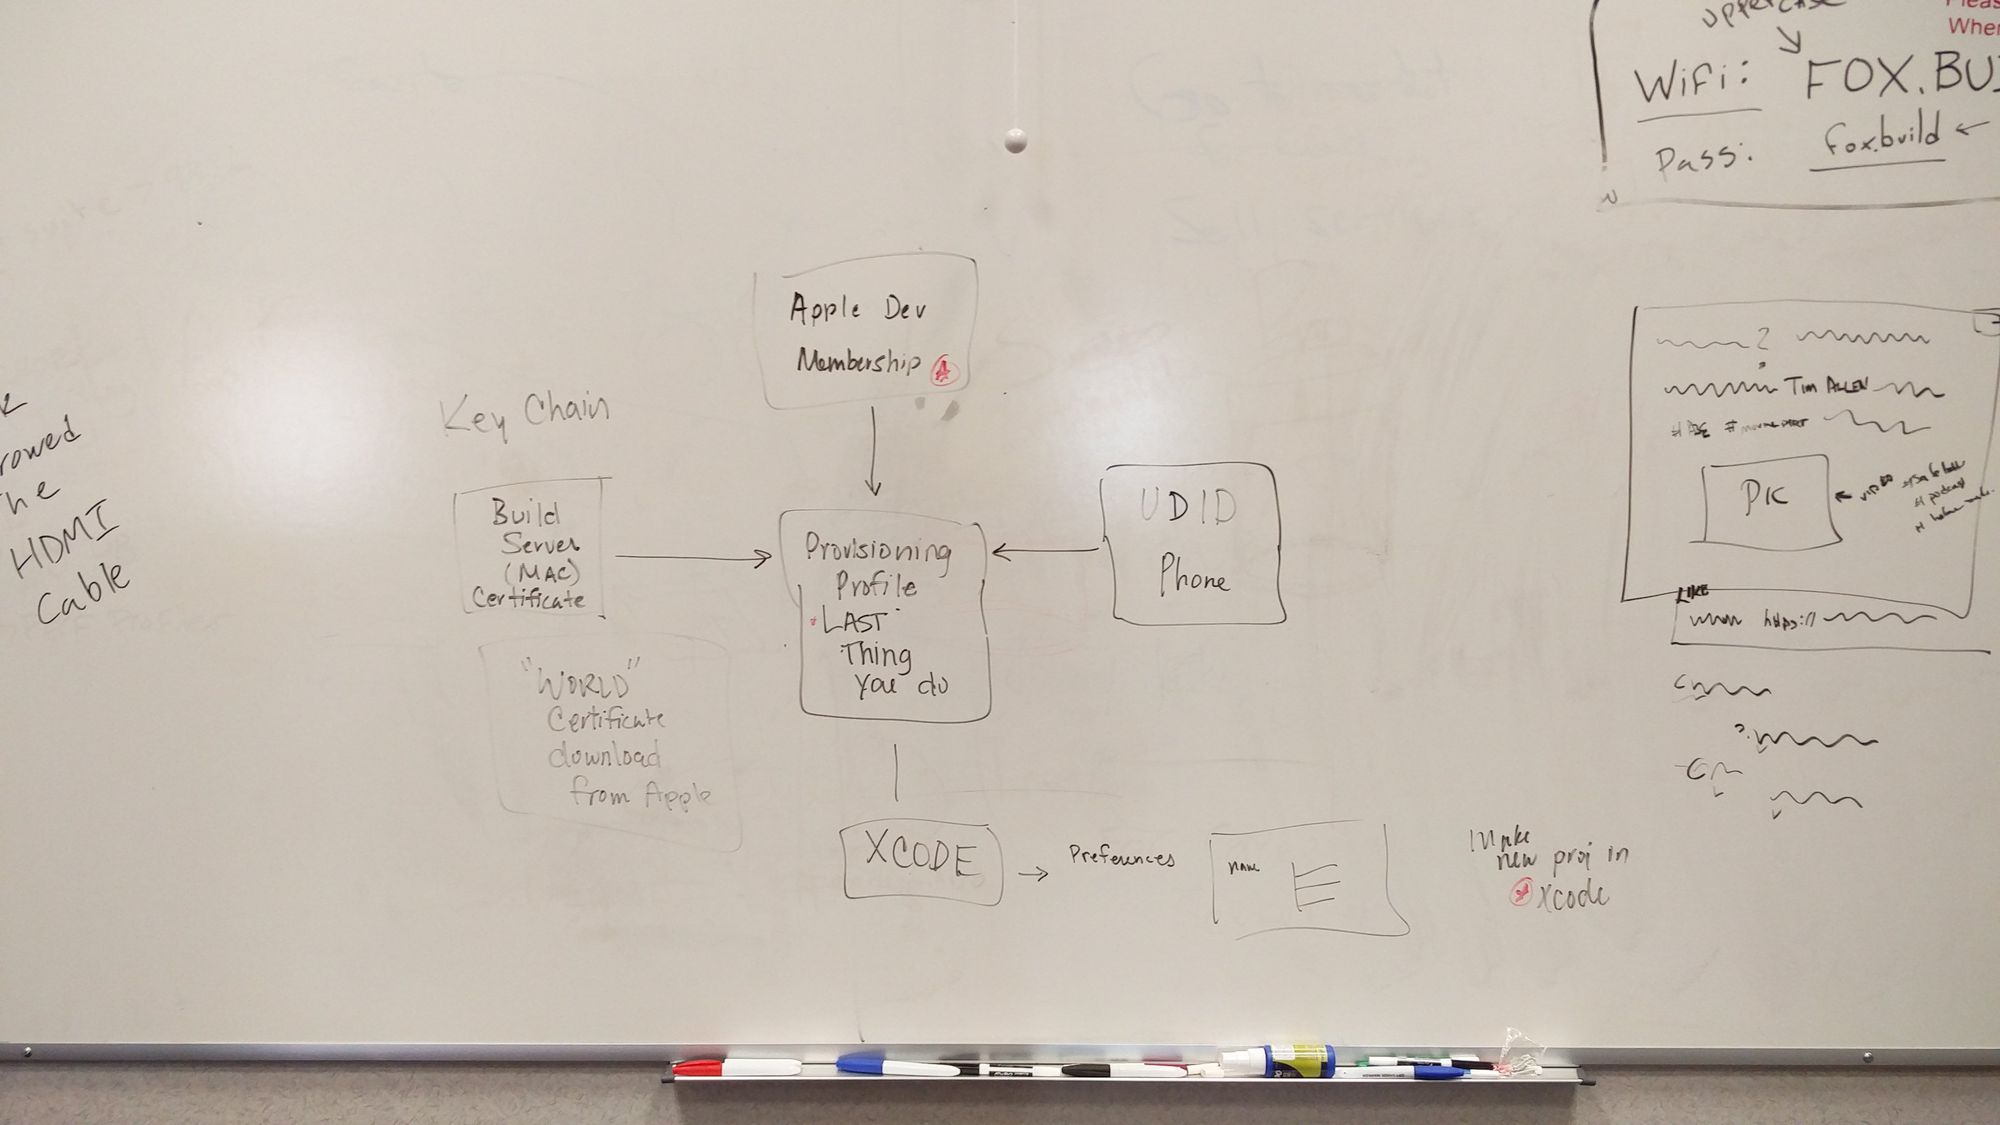 rowed
he
HDMI
Cable
Apple Dev
Membership
Key Chain
Build
Server
(MAC)
Certificate
"WORLD"
Certificate
download
from Apple
Provisioning
Profile
LAST
Thing
you do
UDID
Phone
XCODE
Preferences
NAME
Make
new proj in
Xcode
UPPERCASE
Pleas
When
WiFi: FOX.BUI
Pass: fox.build
?
TIM ALLEN
PIC
podcast
LIKE
https://